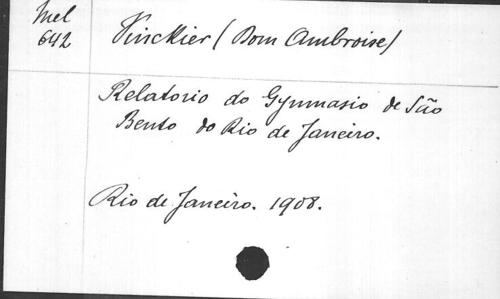 Mel
642
Vinckier (Dom Ambroise)
Relatorio do Gymnasio de São
Bento do Rio de Janeiro.
Rio de Janeiro. 1908.